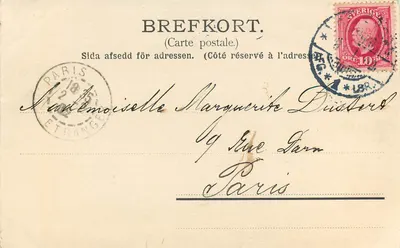 BREFKORT.
(Carte postale.)
Sida afsedd för adressen. (Côté réservé à l'adresse
SVERIGE
ÖRE 10
PARIS
ETRANGER
1
LBR.
Mademoiselle Marguerite
9 Rue Daru
Paris